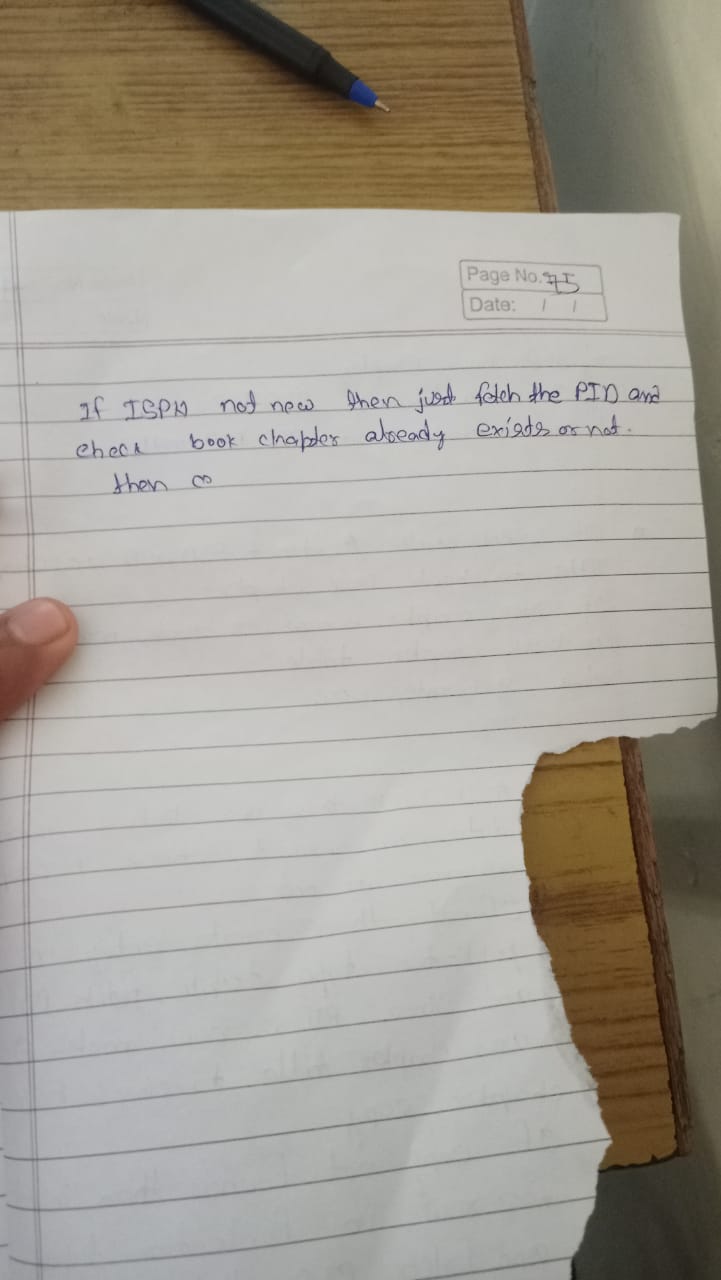 Page No. 75
Date: / /
If ISPN not new then just fetch the PID and
check book chapter already exists or not.
then